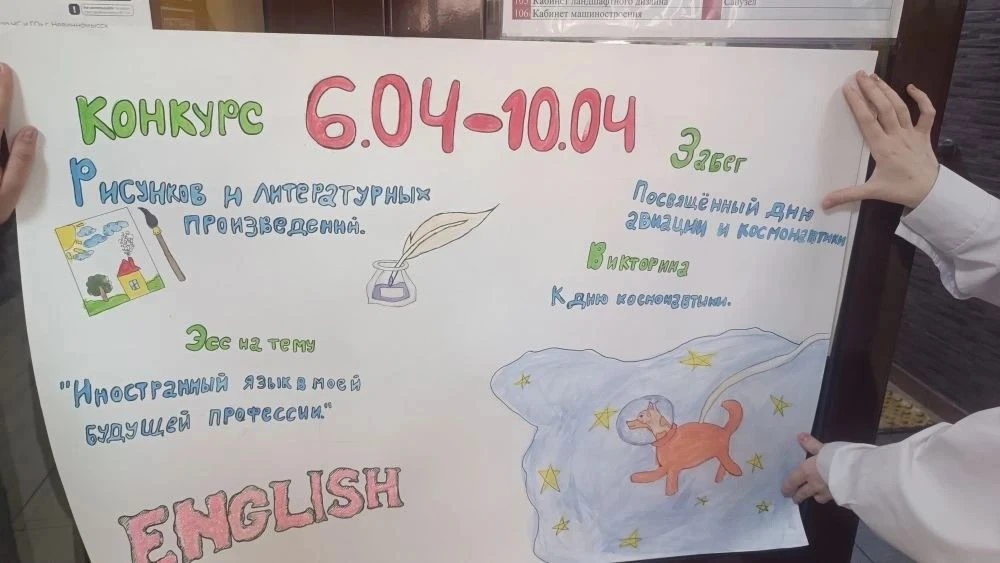 105 Кабинет ландшафтного дизайна
Санузел
106 Кабинет машиностроения
КОНКУРС
6.04-10.04
РИСУНКОВ И ЛИТЕРАТУРНЫХ
ПРОИЗВЕДЕНИЙ.
Забег
ПОСВЯЩЁННЫЙ ДНЮ
АВИАЦИИ И КОСМОНАВТИКИ
ВИКТОРИНА
К ДНЮ КОСМОНАВТИКИ.
Эсс на тему
"ИНОСТРАННЫЙ ЯЗЫК В МОЕЙ
БУДУЩЕЙ ПРОФЕССИИ."
ENGLISH